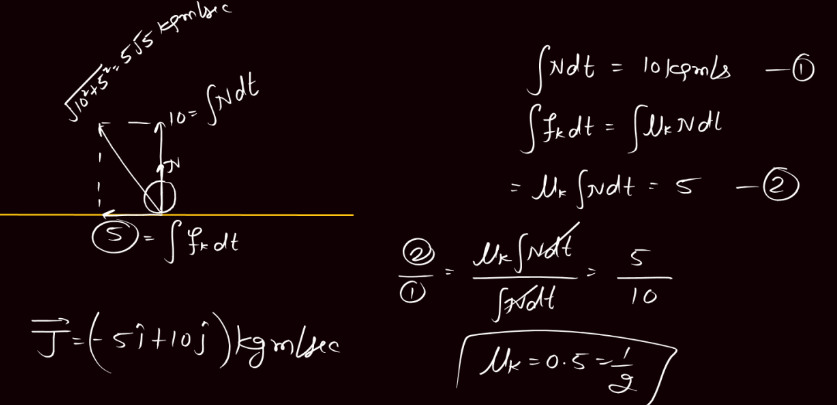 √10²+5² = 5√5 kgm/sec
10 = ∫Ndt
N
5 = ∫fₖdt
J⃗ = (-5î+10ĵ) kgm/sec
∫Ndt = 10kgm/s — ①
∫fₖdt = ∫μₖNdt
= μₖ∫Ndt = 5 — ②
②/① = μₖ∫Ndt/∫Ndt = 5/10
μₖ = 0.5 = 1/2